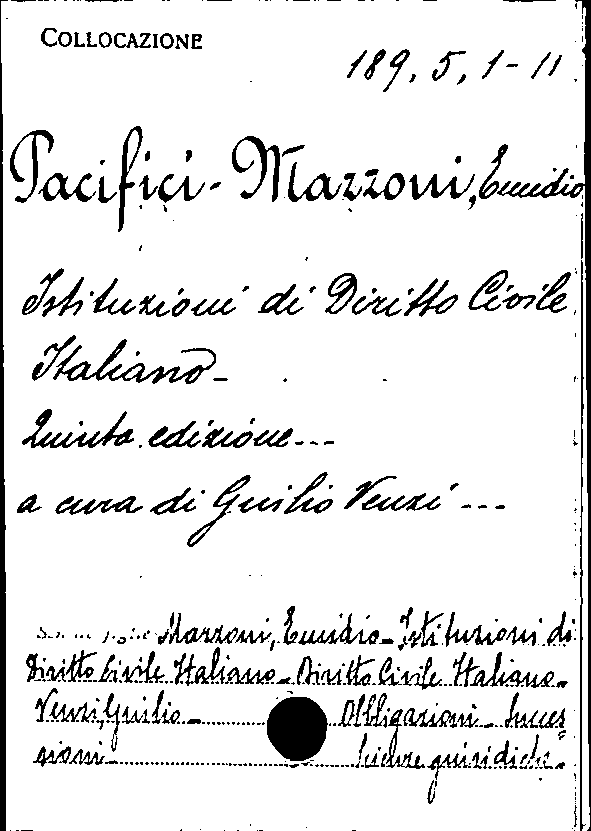 COLLOCAZIONE
189, 5, 1-11
Pacifici-Mazzoni, Emidio
Istituzioni di Diritto Civile
Italiano-
Quinta edizione---
a cura di Guilio Venzi ---
Mazzoni, Emidio- Istituzioni di
Diritto Civile Italiano- Diritto Civile Italiano-
Venzi, Guilio- Obbligazioni- Succes=
sioni- Scienze giuridiche-